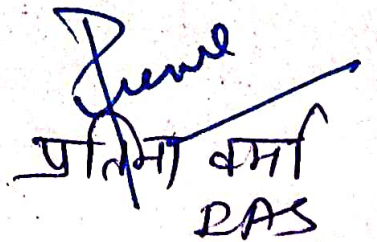 प्रतिमा वर्मा
RAS